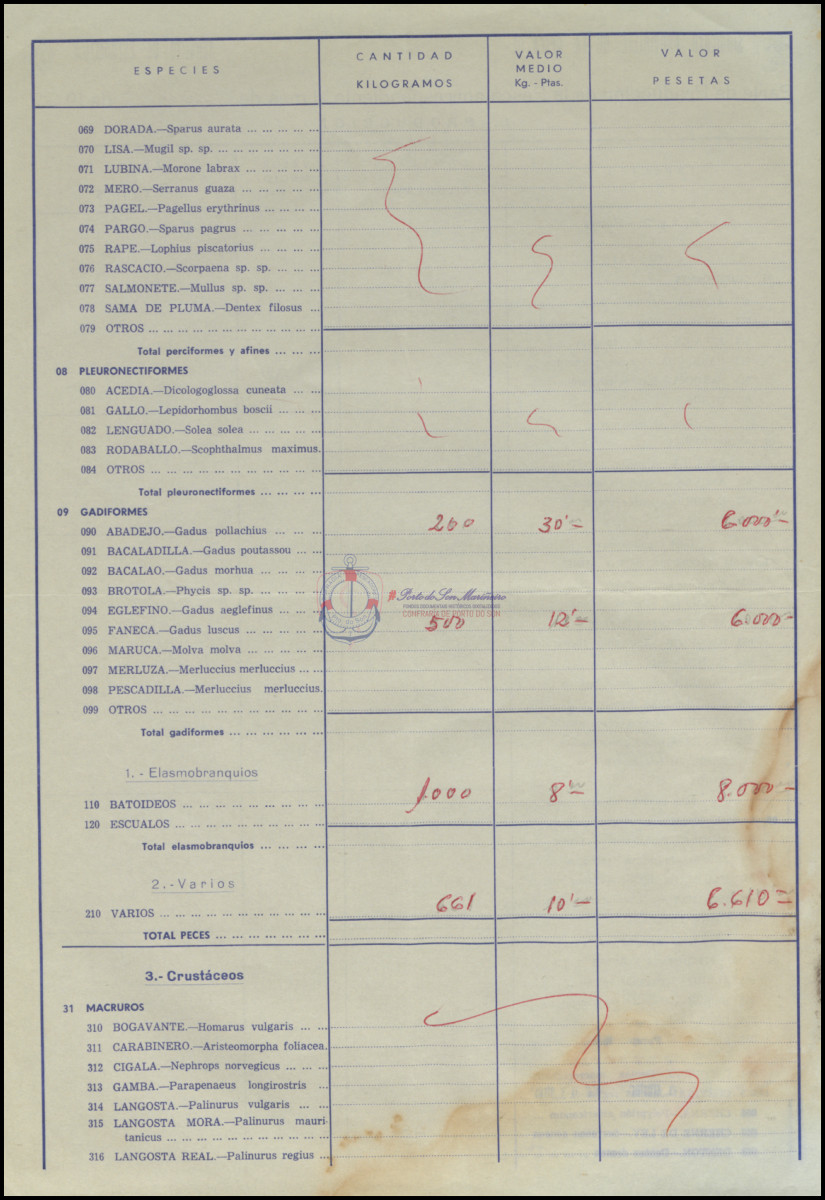 ESPECIES CANTIDAD KILOGRAMOS VALOR MEDIO Kg. - Ptas. VALOR PESETAS
069 DORADA.—Sparus aurata ... ... ... ... ...
070 LISA.—Mugil sp. sp. ... ... ... ... ... ... ...
071 LUBINA.—Morone labrax ... ... ... ... ...
072 MERO.—Serranus guaza ... ... ... ... ...
073 PAGEL.—Pagellus erythrinus ... ... ... ...
074 PARGO.—Sparus pagrus ... ... ... ... ...
075 RAPE.—Lophius piscatorius ... ... ... ...
076 RASCACIO.—Scorpaena sp. sp. ... ... ...
077 SALMONETE.—Mullus sp. sp. ... ... ...
078 SAMA DE PLUMA.—Dentex filosus ...
079 OTROS ... ... ... ... ... ... ... ... ... ... ... ...
Total perciformes y afines ... ... ...
08 PLEURONECTIFORMES
080 ACEDIA.—Dicologoglossa cuneata ... ...
081 GALLO.—Lepidorhombus boscii ... ... ...
082 LENGUADO.—Solea solea ... ... ... ... ...
083 RODABALLO.—Scophthalmus maximus.
084 OTROS ... ... ... ... ... ... ... ... ... ... ... ...
Total pleuronectiformes ... ... ... ...
09 GADIFORMES
090 ABADEJO.—Gadus pollachius ... ... ... 200 30'= 6.000'=
091 BACALADILLA.—Gadus poutassou ... ...
092 BACALAO.—Gadus morhua ... ... ... ...
093 BROTOLA.—Phycis sp. sp. ... ... ... ... ...
Porto do Son Mariñeiro
094 EGLEFINO.—Gadus aeglefinus ... ... ...
CONFRARÍA DE PORTO DO SON
095 FANECA.—Gadus luscus ... ... ... ... ... 500 12'= 6.000=
096 MARUCA.—Molva molva ... ... ... ... ...
097 MERLUZA.—Merluccius merluccius ... ...
098 PESCADILLA.—Merluccius merluccius.
099 OTROS ... ... ... ... ... ... ... ... ... ... ... ...
Total gadiformes ... ... ... ... ... ... ...
1. - Elasmobranquios
110 BATOIDEOS ... ... ... ... ... ... ... ... ... ... 1.000 8'= 8.000=
120 ESCUALOS ... ... ... ... ... ... ... ... ... ...
Total elasmobranquios ... ... ... ... ...
2. - Varios
210 VARIOS ... ... ... ... ... ... ... ... ... ... ... ... 661 10'= 6.610=
TOTAL PECES ... ... ... ... ... ... ... ...
3.- Crustáceos
31 MACRUROS
310 BOGAVANTE.—Homarus vulgaris ... ...
311 CARABINERO.—Aristeomorpha foliacea.
312 CIGALA.—Nephrops norvegicus ... ... ...
313 GAMBA.—Parapenaeus longirostris ...
314 LANGOSTA.—Palinurus vulgaris ... ...
315 LANGOSTA MORA.—Palinurus mauri-
tanicus ... ... ... ... ... ... ... ... ... ... ...
316 LANGOSTA REAL.—Palinurus regius ...